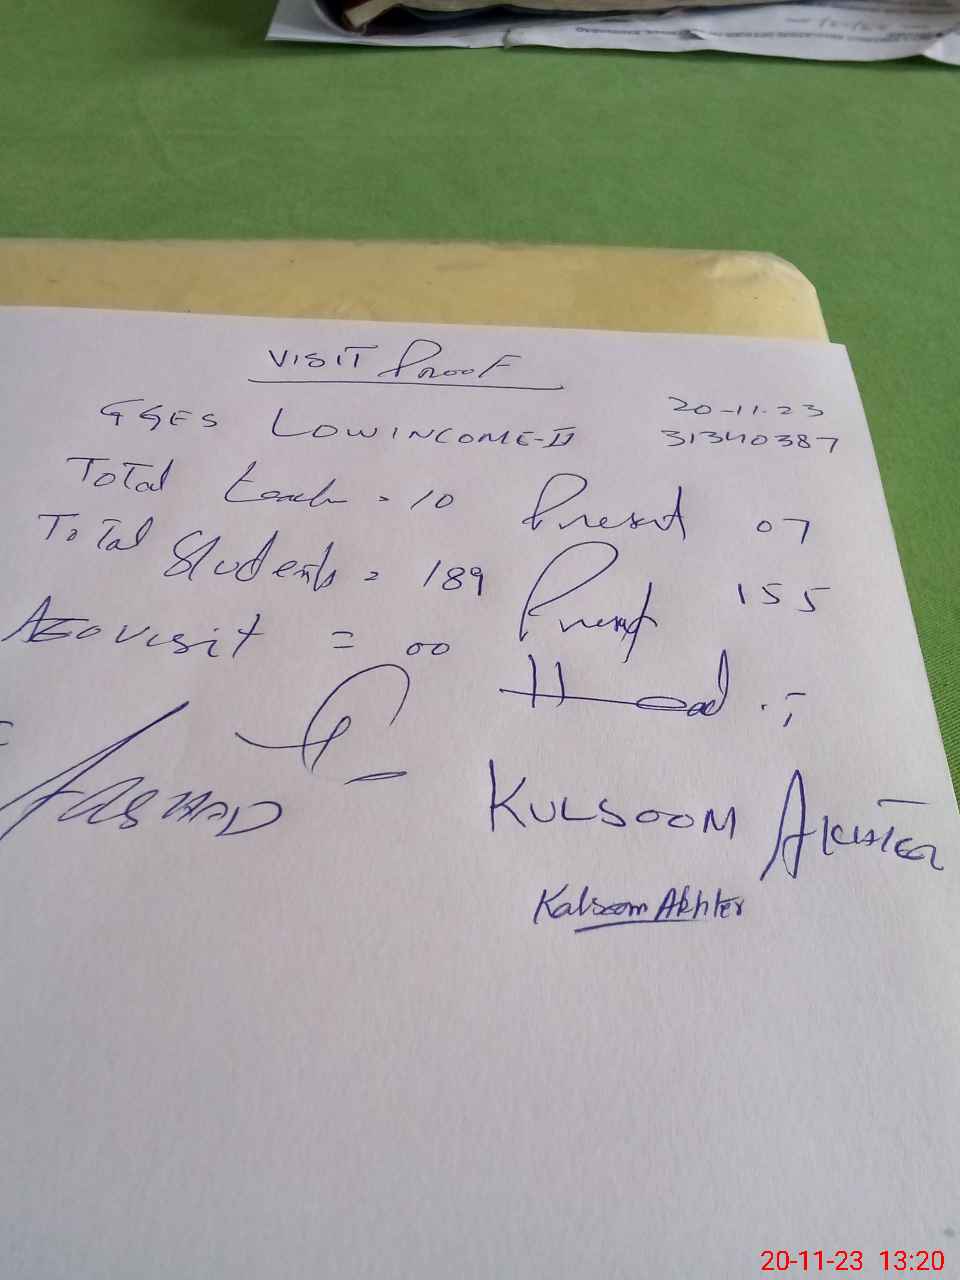 VISIT Proof
GGES LOWINCOME-II 20-11-23
31340387
Total teach = 10 Present 07
Total Students = 189 Present 155
AEO visit = 00
Head :-
ARSHAD
KULSOOM AKHTER
Kalsoom Akhter
20-11-23 13:20